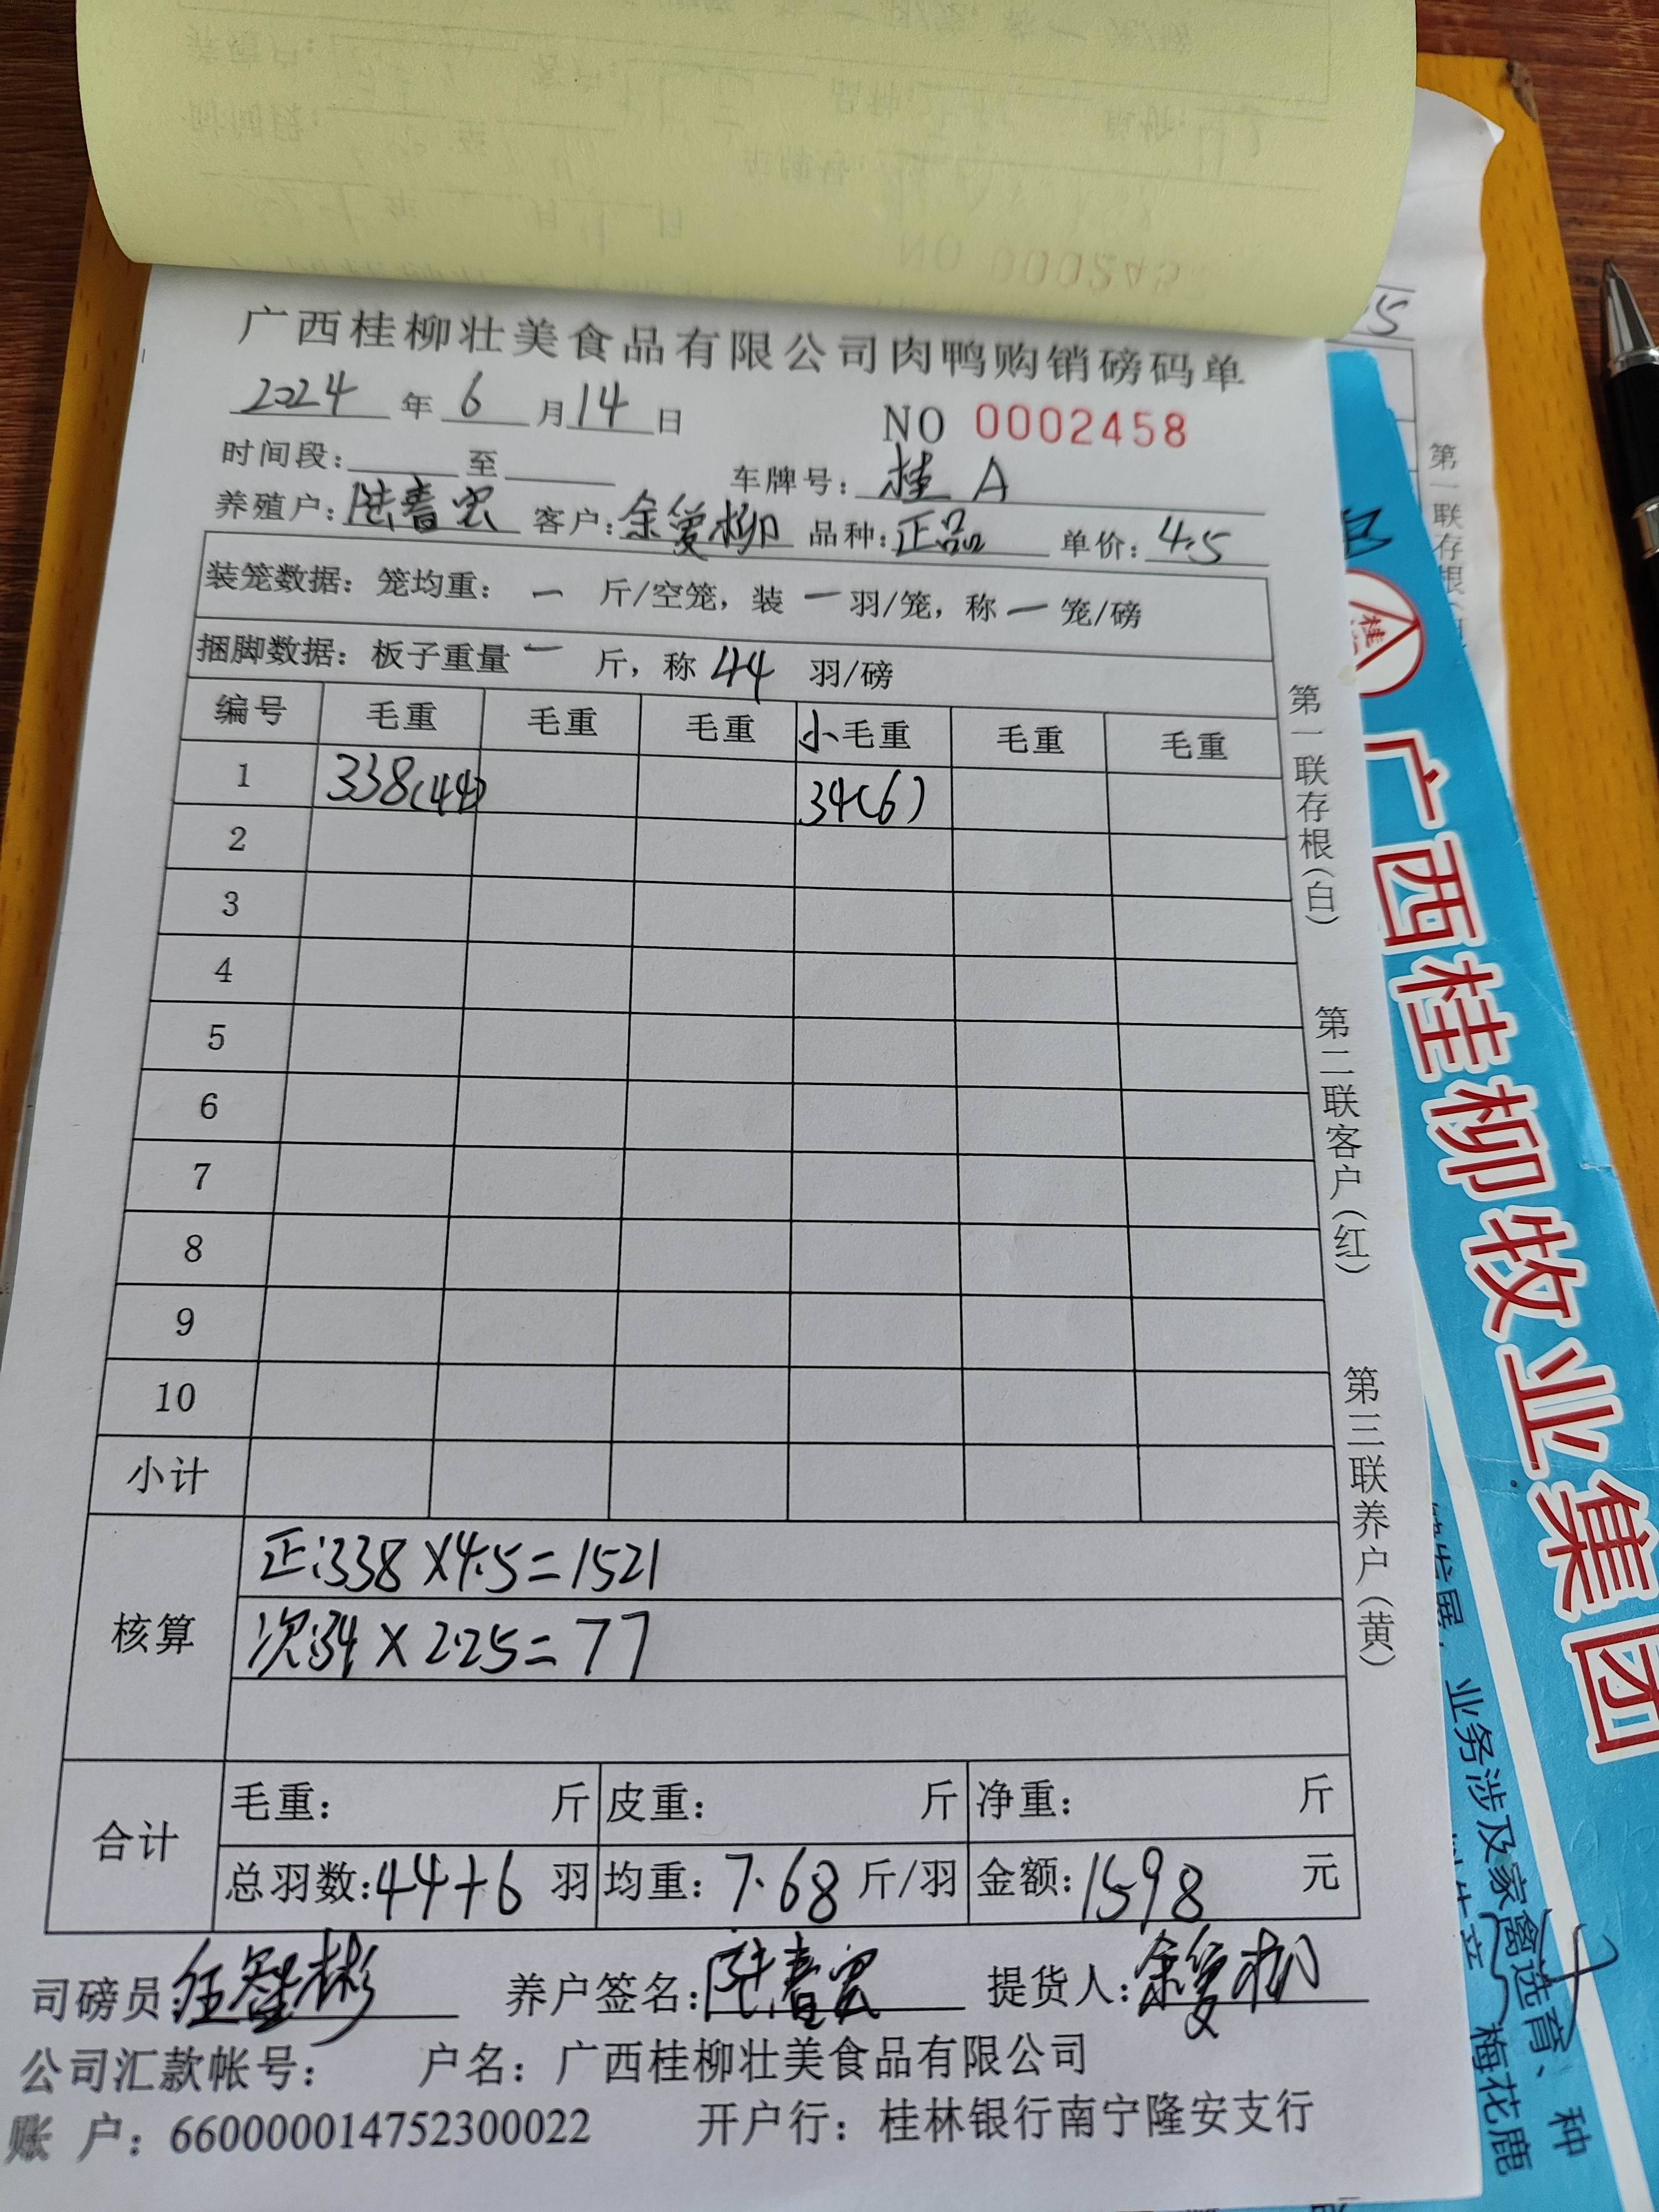 广西桂柳壮美食品有限公司肉鸭购销磅码单
2024 年 6 月 14 日 NO 0002458
时间段: 至 车牌号: 桂 A
养殖户: 陆春宏 客户: 余爱柳 品种: 正品 单价: 4.5
装笼数据: 笼均重: 一 斤/空笼, 装 一 羽/笼, 称 一 笼/磅
捆脚数据: 板子重量 一 斤, 称 44 羽/磅
编号 毛重 毛重 毛重 小毛重 毛重 毛重
1 338(44) 34(6)
2
3
4
5
6
7
8
9
10
小计
核算
正:338×4.5=1521
次:34×2.25=77
合计
毛重: 斤 皮重: 斤 净重: 斤
总羽数:44+6 羽 均重: 7.68 斤/羽 金额:1598 元
司磅员:任智彬 养户签名:陆春宏 提货人:余爱柳
公司汇款帐号: 户名: 广西桂柳壮美食品有限公司
账 户: 660000014752300022 开户行: 桂林银行南宁隆安支行
第一联存根(白) 第二联客户(红) 第三联养户(黄)
广西桂柳牧业集团
业务涉及家禽选育、种
梅花鹿
第一联存根(
NO 000245